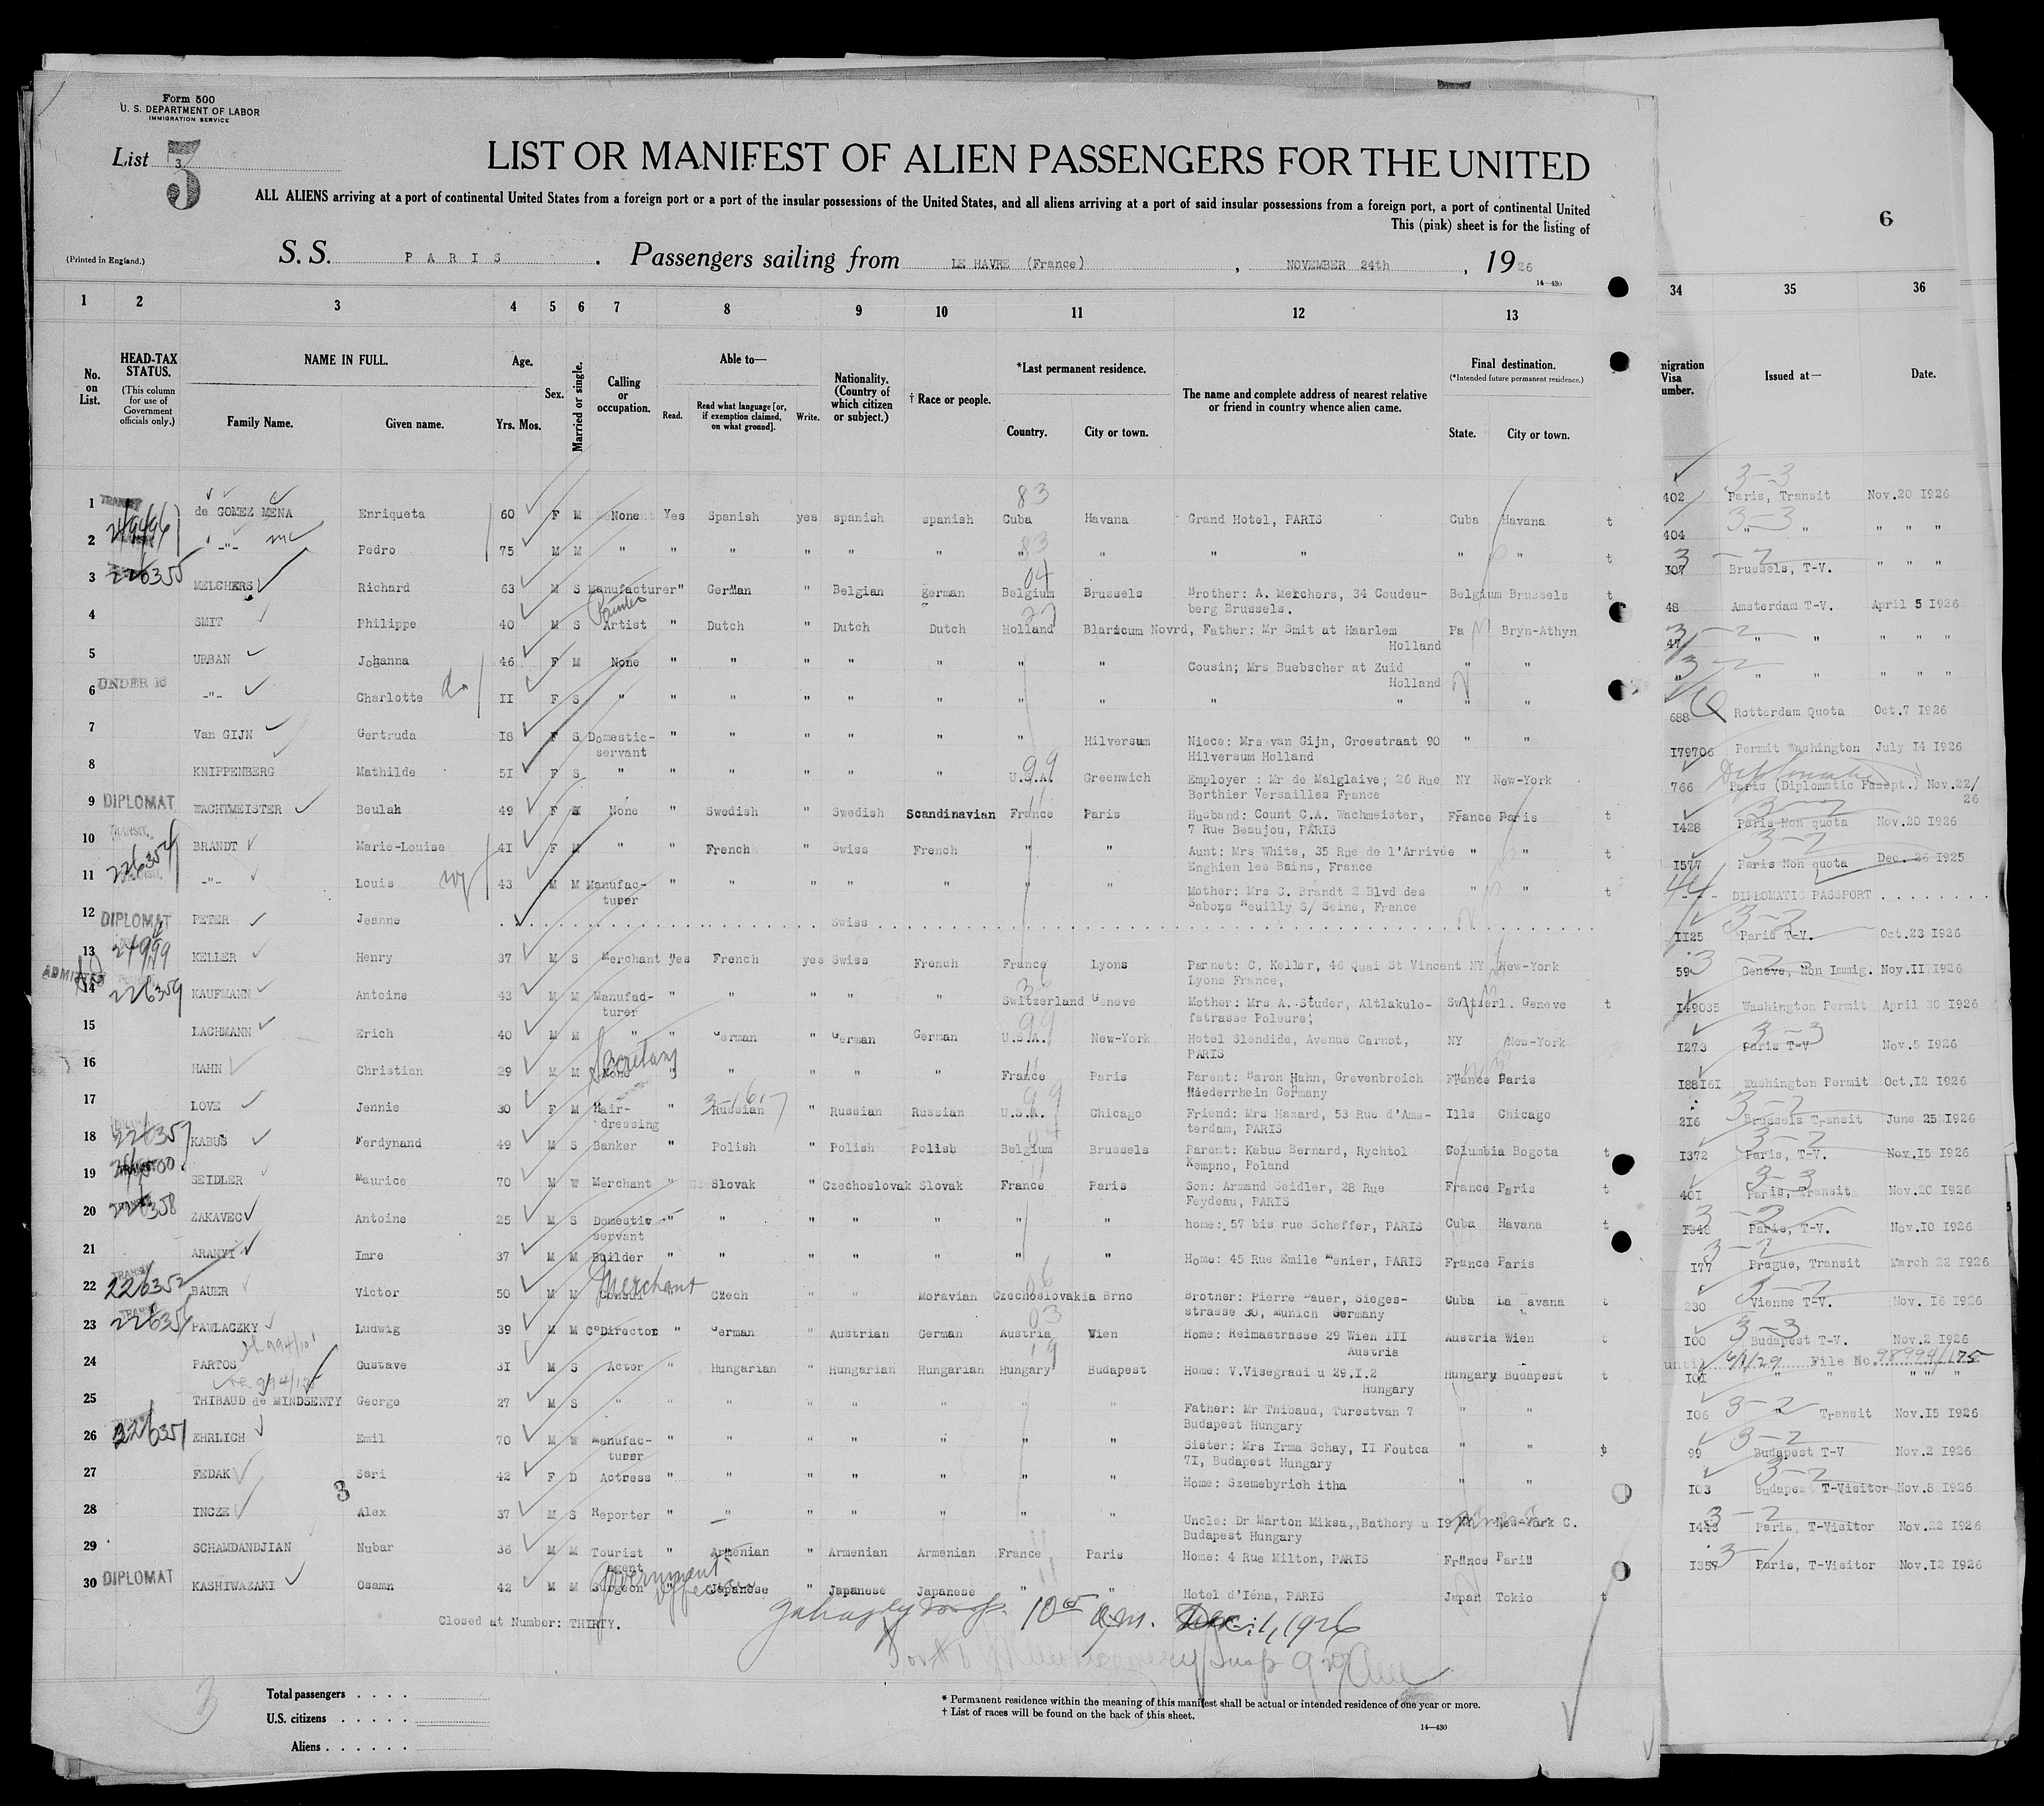 Form 500
U. S. DEPARTMENT OF LABOR
IMMIGRATION SERVICE
List 3
3
LIST OR MANIFEST OF ALIEN PASSENGERS FOR THE UNITED
ALL ALIENS arriving at a port of continental United States from a foreign port or a port of the insular possessions of the United States, and all aliens arriving at a port of said insular possessions from a foreign port, a port of continental United
This (pink) sheet is for the listing of
6
(Printed in England.)
S. S. PARIS . Passengers sailing from LE HAVRE (France) , NOVEMBER 24th , 19 26
14—430
1 2 3 4 5 6 7 8 9 10 11 12 13 34 35 36
No. on List.
HEAD-TAX STATUS.
(This column for use of Government officials only.)
NAME IN FULL.
Family Name. Given name.
Age.
Yrs. Mos.
Sex.
Married or single.
Calling or occupation.
Able to—
Read. Read what language [or, if exemption claimed, on what ground]. Write.
Nationality. (Country of which citizen or subject.)
† Race or people.
*Last permanent residence.
Country. City or town.
The name and complete address of nearest relative or friend in country whence alien came.
Final destination.
(*Intended future permanent residence.)
State. City or town.
migration Visa umber.
Issued at—
Date.
1 de GOMEZ MENA Enriqueta 60 F M None Yes Spanish yes spanish spanish Cuba Havana Grand Hotel, PARIS Cuba Havana t
83
2 -"- Pedro 75 M M " " " " " " " " " " " " t
3 226355 MELCHERS Richard 63 M S Manufacturer " German " Belgian german Belgium Brussels Brother: A. Merchers, 34 Coudeu-berg Brussels. Belgium Brussels t
4 SMIT Philippe 40 M S Artist " Dutch " Dutch Dutch Holland Blaricum Novrd, Father: Mr Smit at Haarlem Holland Pa Bryn-Athyn
5 URBAN Johanna 46 F M None " " " " " " " Cousin; Mrs Buebscher at Zuid Holland " "
6 UNDER 16 -"- Charlotte II F S " " " " " " " " " " " "
7 Van GIJN Gertruda I8 F S Domestic-servant " " " " " " Hilversum Niece: Mrs van Gijn, Groestraat 90 Hilversum Holland " "
8 KNIPPENBERG Mathilde 5I F S " " " " " " U.S.A. Greenwich Employer : Mr de Malglaive; 26 Rue Berthier Versailles France NY New-York
99
9 DIPLOMAT WACHTMEISTER Beulah 49 F M None " Swedish " Swedish Scandinavian France Paris Husband: Count C.A. Wachmeister, 7 Rue Beaujou, PARIS France Paris t
10 BRANDT Marie-Louise 4I F M " " French " Swiss French " " Aunt: Mrs White, 35 Rue de l'Arrivée Enghien les Bains, France " " t
11 226354 -"- Louis 43 M M Manufac-turer " " " " " " " Mother: Mrs C. Brandt 2 Blvd des Sabons Neuilly S/ Seine, France " " t
12 DIPLOMAT PETER Jeanne Swiss
13 KELLER Henry 37 M S Merchant yes French yes Swiss French France Lyons Parnet: C. Keller, 46 Quai St Vincent Lyons France, NY New-York
ADMITTED
14 226359 KAUFMANN Antoine 43 M M Manufad-turer " " " " " Switzerland Geneve Mother: Mrs A. Studer, Altlakulo-fstrasse Poleure; Switzerl. Geneve t
15 LACHMANN Erich 40 M M " " German " German German U.S.A. New-York Hotel Slendide, Avenue Carnot, PARIS NY New-York
99
16 HAHN Christian 29 M M None " " " " " France Paris Parent: Baron Hahn, Grevenbroich Niederrhein Germany France Paris
Secretary
17 LOVE Jennie 30 F M Hair-dressing " Russian " Russian Russian U.S.A. Chicago Friend: Mrs Hamard, 53 Rue d'Ams-terdam, PARIS Ills Chicago
18 226357 KABUS Ferdynand 49 M S Banker " Polish " Polish Polish Belgium Brussels Parent: Kabus Bernard, Rychtol Kempno, Poland Columbia Bogota t
19 SEIDLER Maurice 70 M W Merchant " Slovak " Czechoslovak Slovak France Paris Son: Armand Seidler, 28 Rue Feydeau, PARIS France Paris t
20 226358 ZAKAVEC Antoine 25 M S Domestic servant " " " " " " " home: 57 bis rue Scheffer, PARIS Cuba Havana t
21 ARANYI Imre 37 M M Builder " " " " " " " Home: 45 Rue Emile Menier, PARIS France Paris
22 226352 BAUER Victor 50 M M Consul " Czech " " Moravian Czechoslovakia Brno Brother: Pierre Bauer, Sieges-strasse 30, Munich Germany Cuba La avana t
Merchant
23 226356 PAWLACZKY Ludwig 39 M M C°Director " German " Austrian German Austria Wien Home: Reimastrasse 29 Wien III Austria Austria Wien t
24 PARTOS Gustave 3I M S Actor " Hungarian " Hungarian Hungarian Hungary Budapest Home: V.Visegradi u 29.I.2 Hungary Hungary Budapest t
25 THIBAUD de MINDSENTY George 27 M S " " " " " " " " Father: Mr Thibaud, Turestvan 7 Budapest Hungary " "
26 226351 EHRLICH Emil 70 M W Manufac-turer " " " " " " " Sister: Mrs Irma Schay, II Foutca 7I, Budapest Hungary " " t
27 FEDAK Sari 42 F D Actress " " " " " " " Home: Szemebyrich itha " "
3
28 INCZE Alex 37 M S Reporter " " " " " " " Uncle: Dr Marton Miksa,,Bathory u I9 Budapest Hungary NY New-York C.
29 SCHAMDANDJIAN Nubar 36 M M Tourist agent " Armenian " Armenian Armenian France Paris Home: 4 Rue Milton, PARIS France Paris
30 DIPLOMAT KASHIWAZAKI Osamn 42 M M Surgeon " Japanese " Japanese Japanese " " Hotel d'Iéna, PARIS Japan Tokio t
Government
Closed at Number: THIRTY.
10 05 am. Dec. 1, 1926
402 Paris, Transit Nov.20 I926
404 " " " " "
I07 Brussels, T-V. " " "
48 Amsterdam T-V. April 5 I926
47 " " " " "
" " " " " "
688 Rotterdam Quota Oct.7 I926
I79706 Permit Washington July I4 I926
766 Paris (Diplomatic Pasept.) Nov.22/26
I428 Paris Non quota Nov.20 I926
I577 Paris Non quota Dec. 26 I925
DIPLOMATIC PASSPORT
II25 Paris T-V. Oct.23 I926
59 Geneve, Non Immig. Nov.II I926
I49035 Washington Permit April 30 I926
I273 Paris T-V Nov.5 I926
I88I6I Washington Permit Oct.I2 I926
2I6 Brussels Transit June 25 I926
I372 Paris, T-V. Nov.I5 I926
40I Paris, Transit Nov.20 I926
I348 Paris, T-V. Nov.I0 I926
I77 Prague, Transit March 22 I926
230 Vienne T-V. Nov. I6 I926
I00 Budapest T-V. Nov.2 I926
until 6/1/29 File No. 98994/175
I0I " " " " "
I06 " Transit Nov.I5 I926
99 Budapest T-V Nov.2 I926
I03 Budapest T-Visitor Nov.8 I926
I443 Paris, T-Visitor Nov.22 I926
I357 Paris, T-Visitor Nov.I2 I926
Total passengers . . . .
U.S. citizens . . . . .
Aliens . . . . . .
* Permanent residence within the meaning of this manifest shall be actual or intended residence of one year or more.
† List of races will be found on the back of this sheet.
14—430